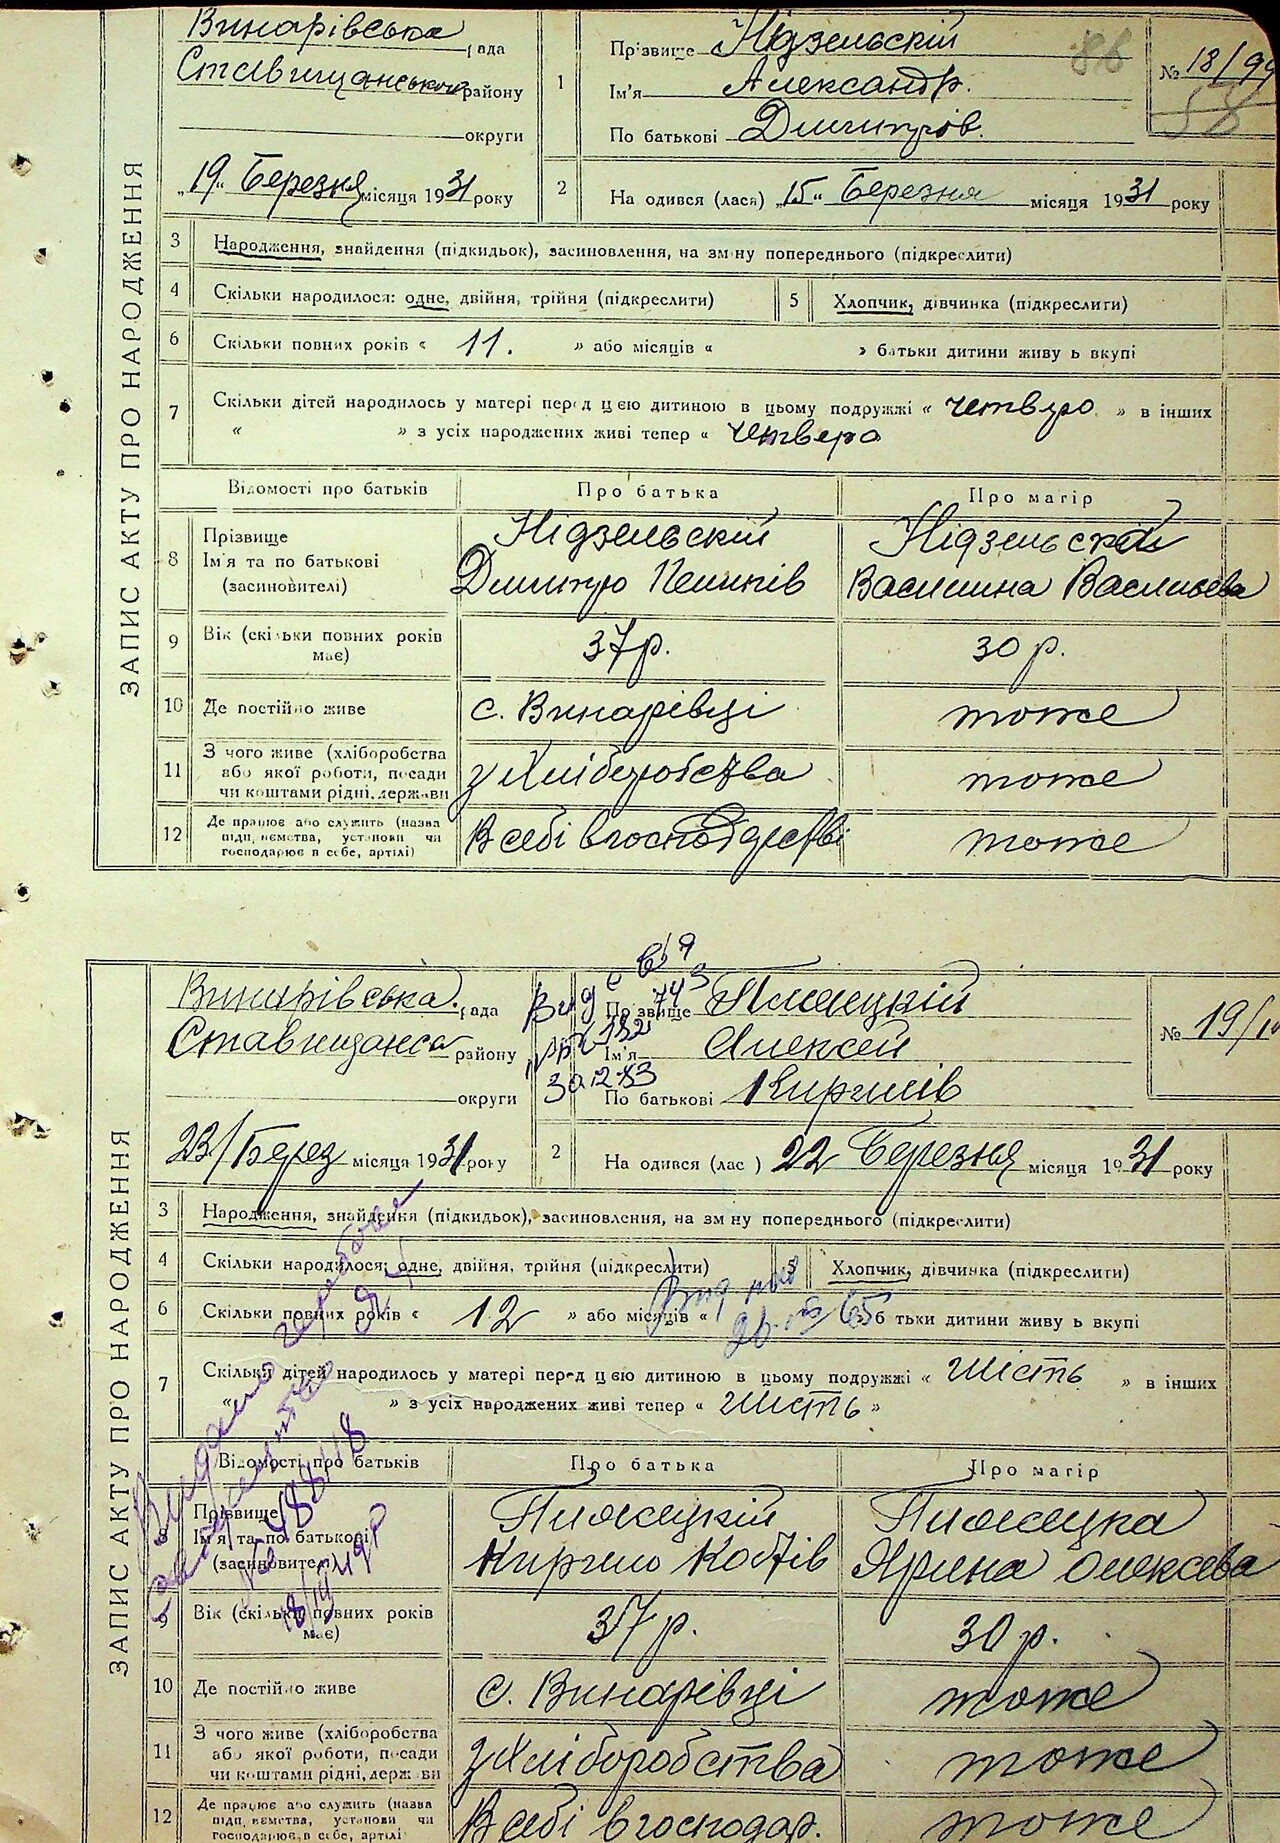 ЗАПИС АКТУ ПРО НАРОДЖЕННЯ
Винарівська рада
Ставищанського району
округи
"19" Березня місяця 1931 року
1
Прізвище Нідзельскій
Ім'я Александр.
По батькові Дмитрів.
88
№ 18/99
58
2
На одився (лася) "15" Березня місяця 1931 року
3 Народження, знайдення (підкидьок), засиновлення, на зм ну попереднього (підкреслити)
4 Скільки народилося: одне, двійня, трійня (підкреслити) 5 Хлопчик, дівчинка (підкреслити)
6 Скільки повних років « 11. » або місяців « » батьки дитини живу ь вкупі
7 Скільки дітей народилось у матері перед цією дитиною в цьому подружжі « четверо » в інших
« » з усіх народжених живі тепер « четверо
Відомості про батьків Про батька Про матір
8 Прізвище Ім'я та по батькові (засиновителі)
Нідзельскій Дмитро
Нідзельскій Василина Васильева
9 Вік (скільки повних років має) 37 р. 30 р.
10 Де постійно живе с. Винарівці тоже
11 З чого живе (хліборобства або якої роботи, посади чи коштами рідні, держави
з Хліборобства тоже
12 Де працює або служить (назва підприємства, установи чи господарює в себе, артілі)
В себі в господарстві тоже
ЗАПИС АКТУ ПРО НАРОДЖЕННЯ
Винарівська рада
Ставищанса району
округи
23/Берез місяця 1931 року
Прізвище
Ім'я Алексей
По батькові Кирилів
№ 19/
2 На одився (лас ) 22 Березня місяця 1931 року
3 Народження, знайдення (підкидьок), засиновлення, на зм ну попереднього (підкреслити)
4 Скільки народилося: одне, двійня, трійня (підкреслити) Хлопчик, дівчинка (підкреслити)
6 Скільки повних років « 12 » або місяців « б тьки дитини живу ь вкупі
7 Скільки дітей народилось у матері перед цією дитиною в цьому подружжі « шість » в інших
« » з усіх народжених живі тепер « шість »
Відомості про батьків Про батька Про матір
8 Прізвище Ім'я та по батькові (засиновителі)
Кирило
Ярина Олексева
9 Вік (скільки повних років має) 37 р. 30 р.
10 Де постійно живе с. Винарівці тоже
11 З чого живе (хліборобства або якої роботи, посади чи коштами рідні, держави
з Хліборобства тоже
12 Де працює або служить (назва підприємства, установи чи господарює в себе, артілі
В себі в господар. тоже